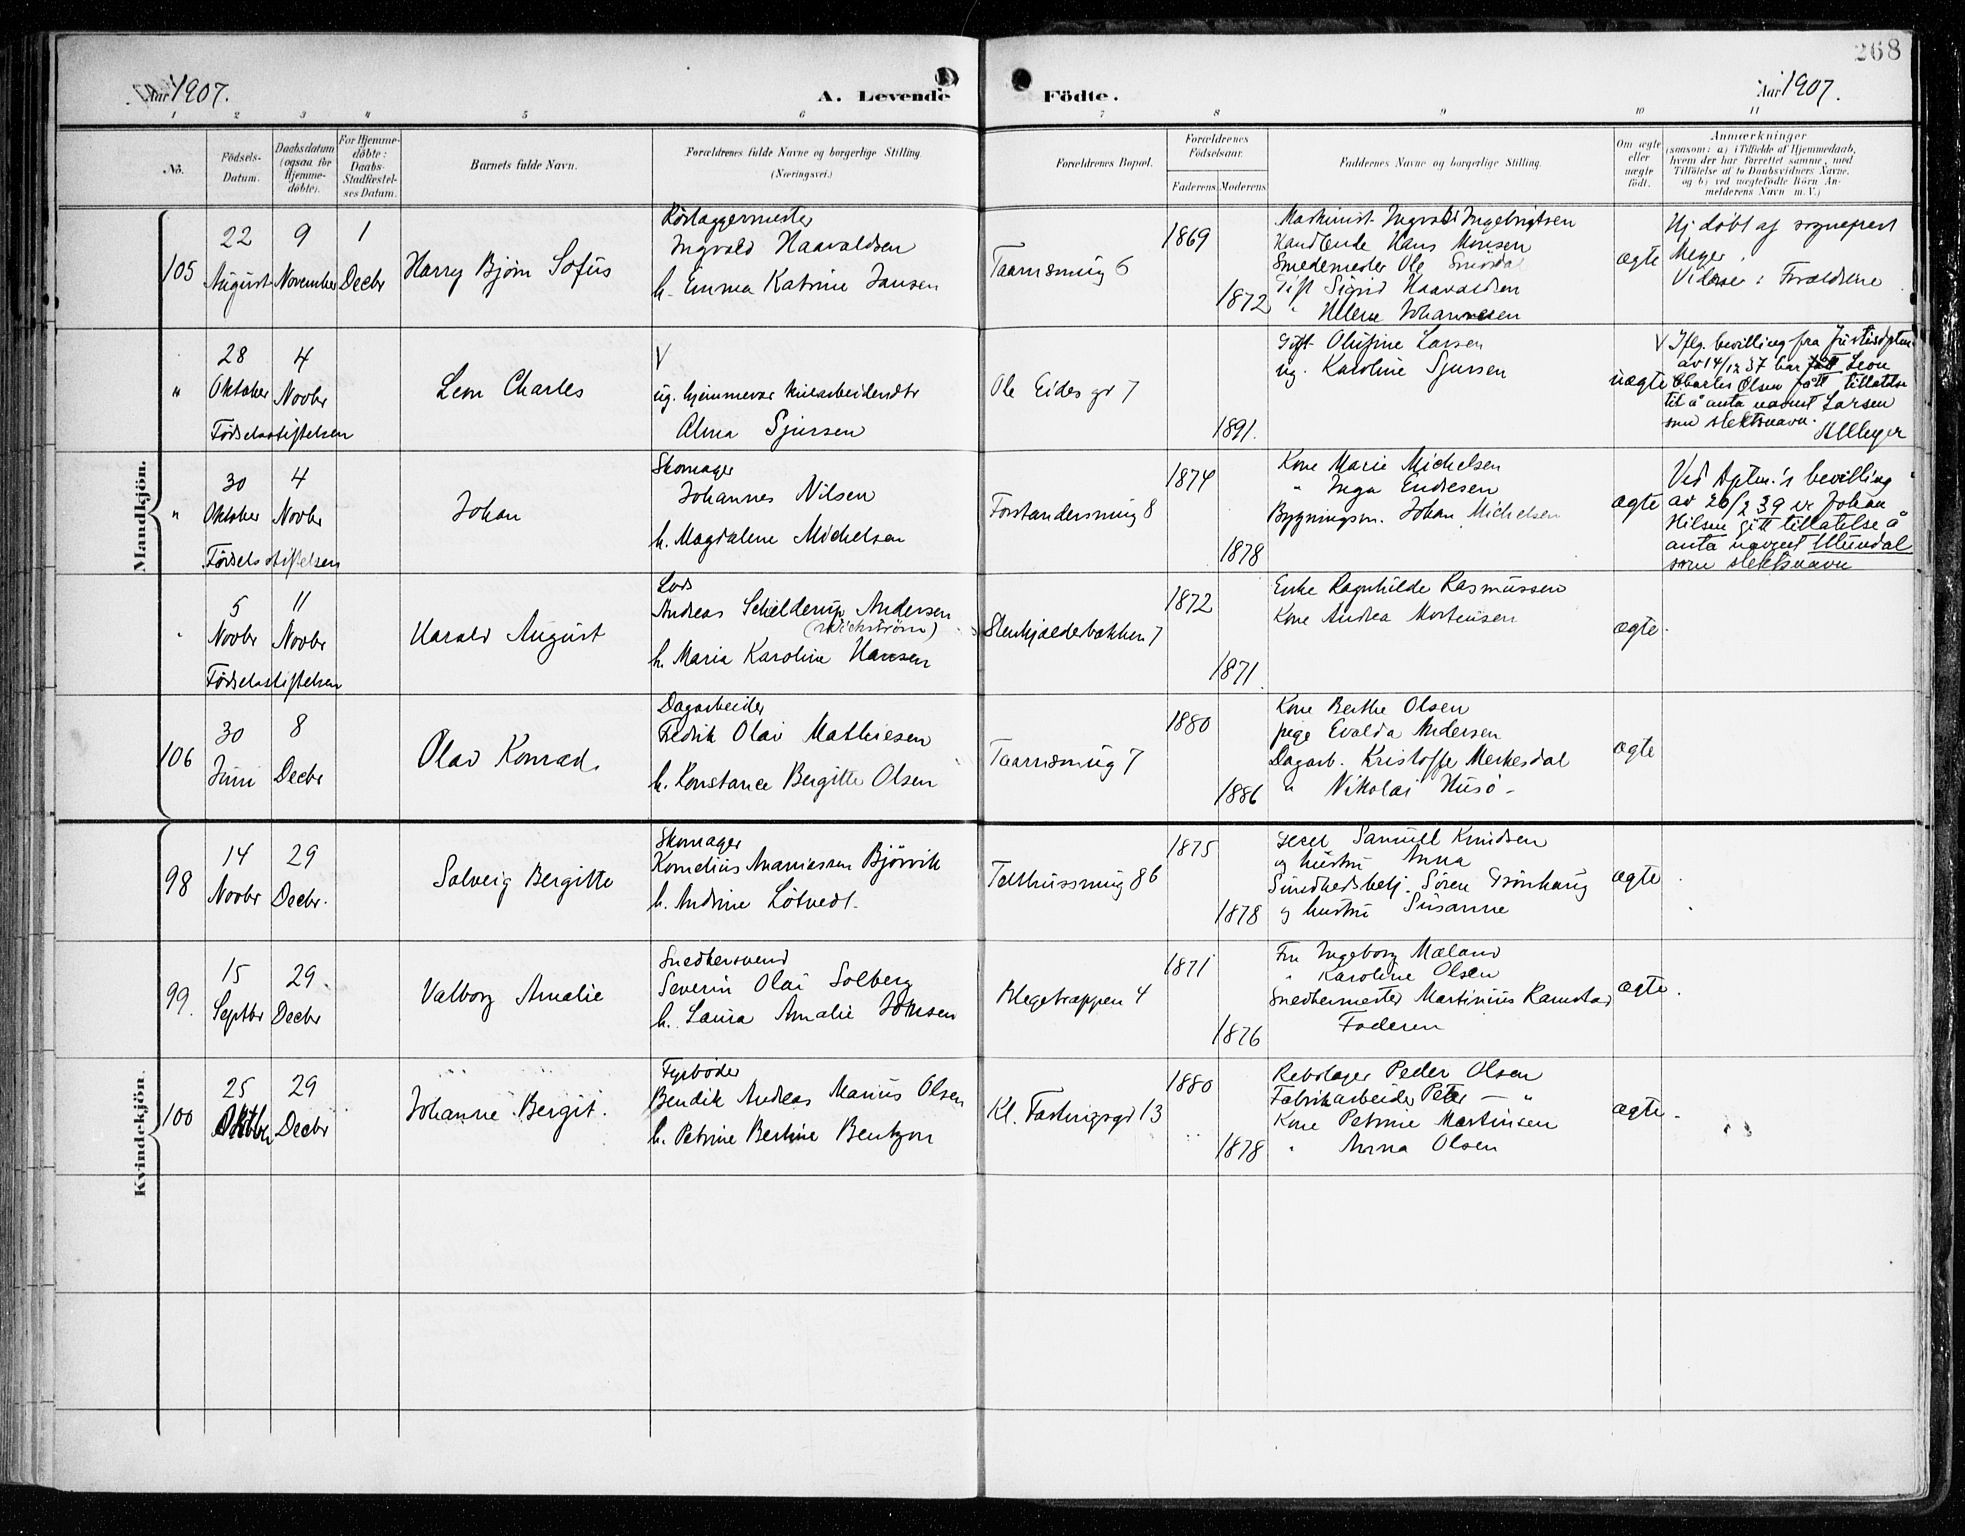 268
Aar 1907.
A. Levende Födte.
Aar 1907.
1 2 3 4 5 6 7 8 9 10 11
No.
Födsels-Datum.
Daabsdatum (ogsaa for Hjemme-döbte).
For Hjemme-döbte: Daabs-Stadfæstel-ses Datum.
Barnets fulde Navn.
Forældrenes fulde Navne og borgerlige Stilling.
(Næringsvei.)
Forældrenes Bopæl.
Forældrenes Födselsaar.
Faderens. Moderens.
Faddernes Navne og borgerlige Stilling.
Om ægte eller uægte födt.
Anmærkninger
(saasom: a) i Tilfælde af Hjemmedaab,
hvem der har forrettet samme, med
Tilföielse af to Daabsvidners Navne,
og b) ved uægtefödte Börn An-
melderens Navn m. V.)
Mandkjön.
105
22 August
9 November
1 Decbr
Harry Bjørn Sofus
Rørlæggermester
Ingvald Haavaldsen
h. Emma Katrine Jansen
Taarnsmug 6
1869
1872
Maskinist Ingvald Ingebrigtsen
Handlende Hans Monsen
Smedemester Ole Smørdal
Gift Sigrid Haavaldsen
" Helene Johannesen
ægte
Hj. døbt af sogneprest
Meyer.
Vidner: Forældrene
"
28 Oktober
4 Novbr
Fødselsstiftelsen
Leon Charles
V
ug. hjemmevær.
Alma Sjursen
Ole Eides gr 7
1891.
Gift Olufine Larsen
ug. Karoline Sjursen
uægte
V Iflg. bevilling fra Justisdptm.
av 14/12 37 har fått Leon
Charles Olsen fått tillatelse
til å anta navnet Larsen
som slektsnavn.
"
30 Oktober
4 Novbr
Fødselsstiftelsen
Johan
Skomager
Johannes Nilsen
h. Magdalene Michelsen
Forstandersmug 8
1874
1878
Kone Marie Michelsen
" Inga Endresen
Bygningsm. Johan Michelsen
ægte
Ved Dptm.'s bevilling
av 20/2 39 er Johan
Nilsen gitt tillatelse å
anta navnet Mundal
som slektsnavn
"
5 Novbr
11 Novbr
Fødselsstiftelsen
Harald August
Lods
Andreas Schelderup Andersen
(Wickstrøm)
h. Maria Karoline Hansen
Stenkjælderbakken 7
1872
1871.
Enke Ragnhilde Rasmussen
Kone Andrea Mortensen
ægte.
106
30 Juni
8 Decbr
Olav Konrad.
Dagarbeider
Fredrik Olai Mathiesen
h. Konstance Bergitte Olsen
Taarnsmug 7
1880
1886
Kone Berthe Olsen
pige Evalda Andersen
Dagarb. Kristoffer Merkesdal
" Nikolai Husø
ægte
Kvindekjön.
98
14 Novbr
29 Decbr.
Solveig Bergitte
Skomager
Kornelius Mariussen Bjørvik
h. Andrine Løtvedt.
Tolthussmug 8b
1875
1878
Samuel Knudsen
og hustru Anna
Sundhedsbetj. Søren Grønhaug
og hustru Susanne
ægte
99.
15 Septbr
29. Decbr
Valborg Amalie
Snedkersvend
Severin Olai Solberg
h. Laura Amalie Johnsen
Blegetrappen 4
1871
1876
Fru Ingeborg Mæland
" Karoline Olsen
Snedkermester Martinius Ramstad
Faderen
ægte.
100
25 Oktbr
29 Decbr
Johanne Bergit.
Fyrbøder
Bendik Andreas Marius Olsen
h. Petrine Bertine Bentzon
Kl. Fastingsgd 13
1880
1878
Rebslager Peder Olsen
Fabrikarbeider Peter — "
Kone Petrine Martinsen
" Anna Olsen
ægte.